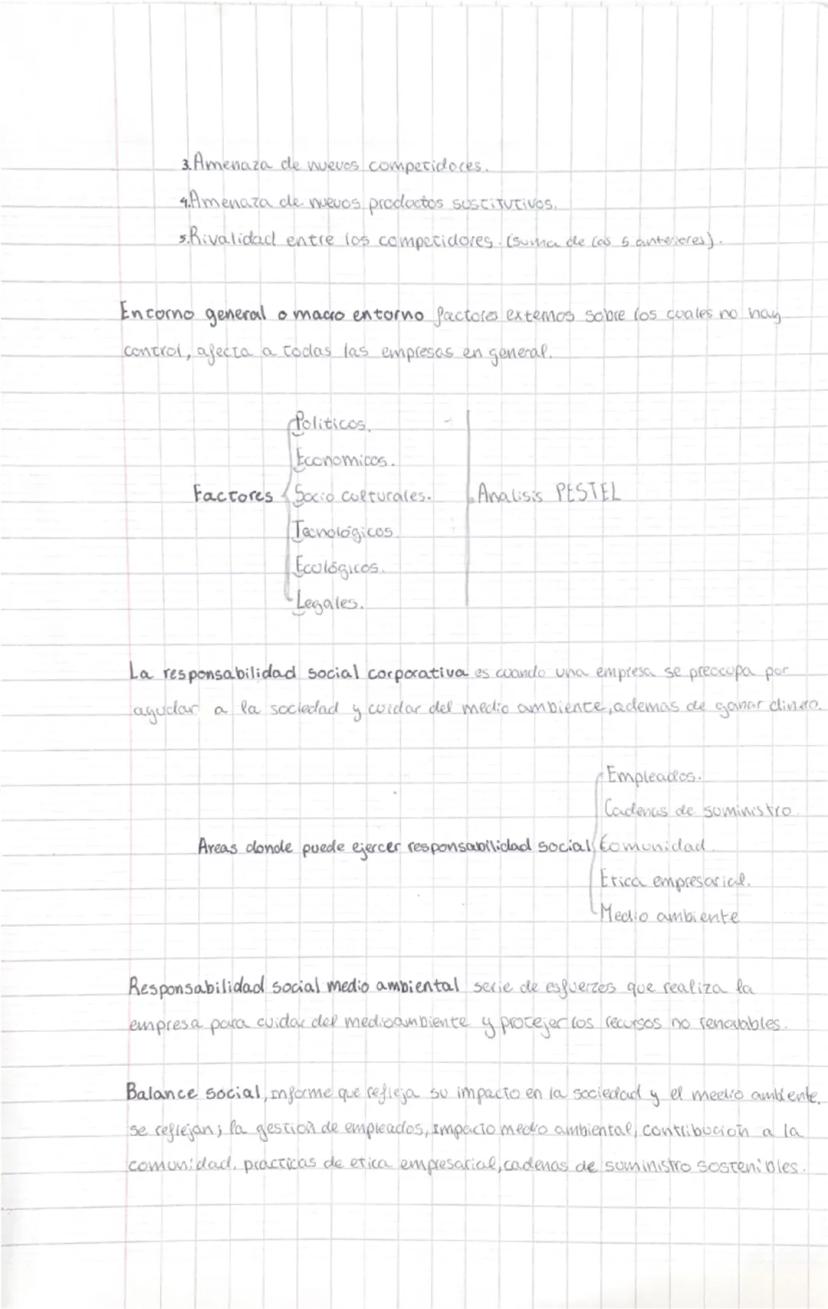 3. Amenaza de nuevos competidores.
4. Amenaza de nuevos productos sustitutivos.
5. Rivalidad entre los competidores. (suma de las 5 anteriores).
Entorno general o macro entorno factores externos sobre los cuales no hay
control, afecta a todas las empresas en general.
Politicos.
Economicos.
Factores Socio culturales. Analisis PESTEL
Tecnológicos
Ecológicos.
Legales.
La responsabilidad social corporativa es cuando una empresa se preocupa por
ayudar a la sociedad y cuidar del medio ambiente, ademas de ganar dinero.
Empleados.
Cadenas de suministro.
Areas donde puede ejercer responsabilidad social Comunidad.
Etica empresarial.
Medio ambiente
Responsabilidad social medio ambiental serie de esfuerzos que realiza la
empresa para cuidar del medioambiente y protejer los recursos no renovables.
Balance social, informe que refleja su impacto en la sociedad y el medio ambiente.
se reflejan; la gestion de empleados, impacto medio ambiental, contribucion a la
comunidad, practicas de etica empresarial, cadenas de suministro sostenibles.